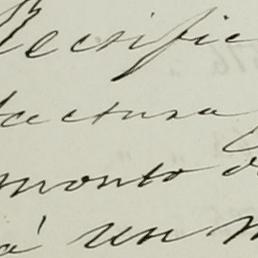 Rectific
factura
monto d
á un m